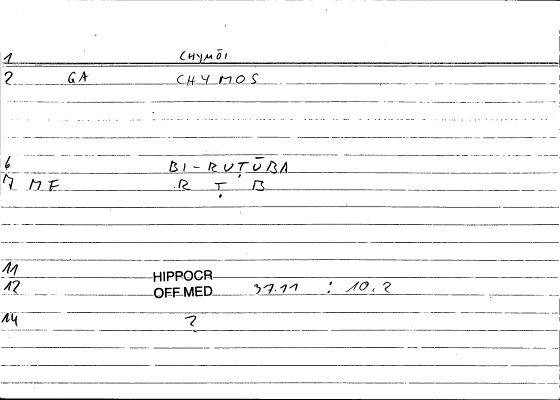 1 CHYMŌI
2 GA CHYMOS
6 BI-RUṬŪBA
7 MF R Ṭ B
11 HIPPOCR
12 OFF MED 37.11 : 10,2
14 ?